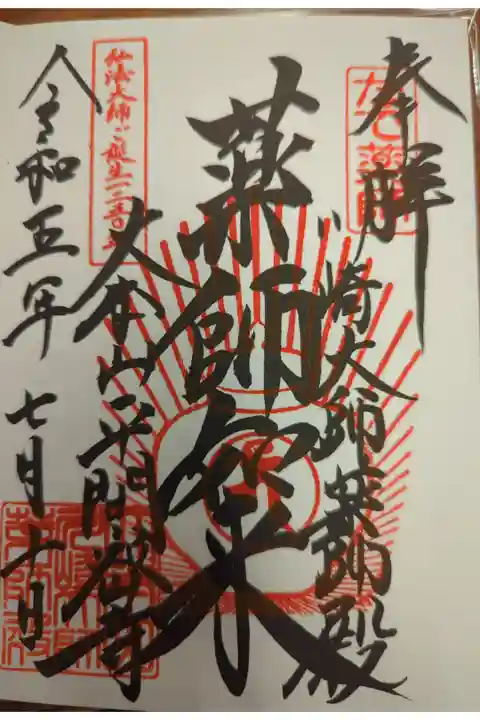 奉拝
川崎大師薬師殿
薬師如来
大本山平間寺
令和五年七月十日
弘法大師ご誕生一二五〇年